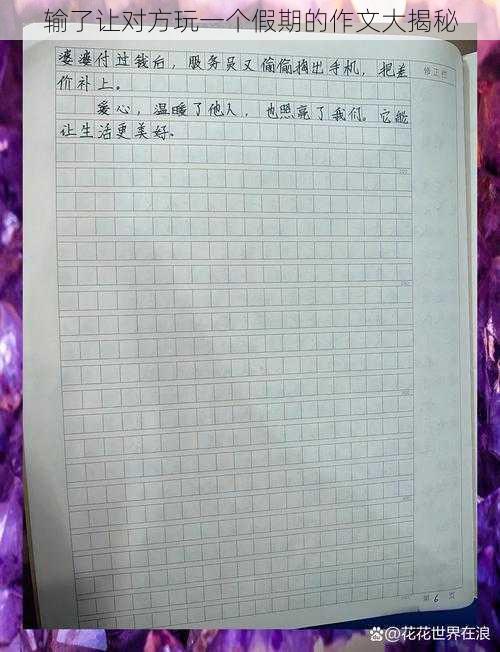 输了让对方玩一个假期的作文大揭秘
婆婆付过钱后，服务员又偷偷掏出手机，把差
价补上。
爱心，温暖了他人，也照亮了我们。它能
让生活更美好。
修正栏
第 6 页
@花花世界在浪